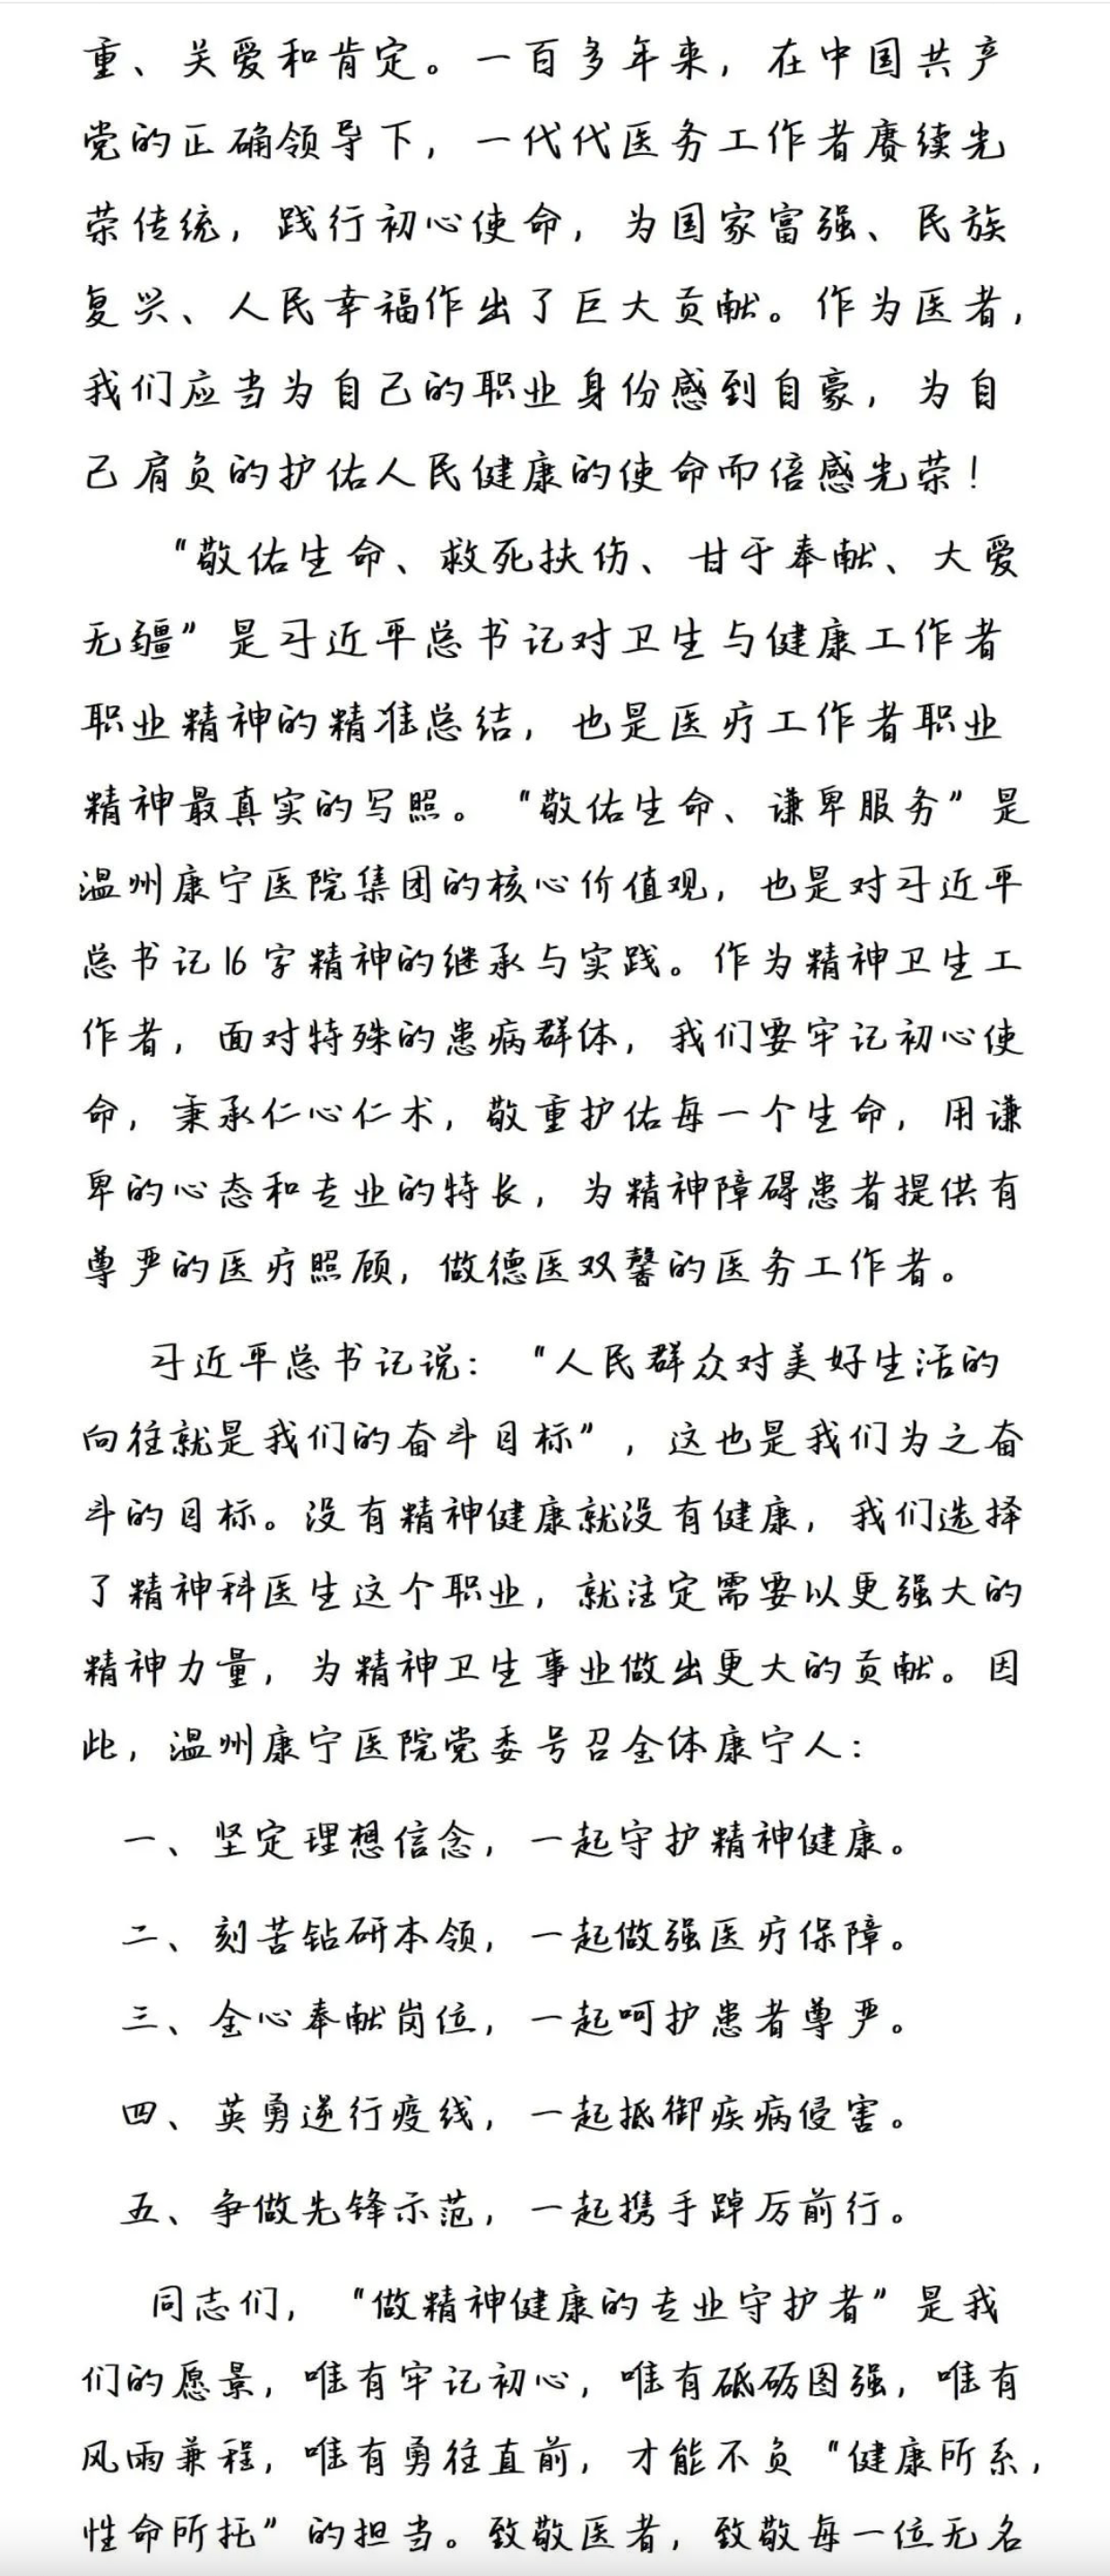 重、关爱和肯定。一百多年来，在中国共产
党的正确领导下，一代代医务工作者赓续光
荣传统，践行初心使命，为国家富强、民族
复兴、人民幸福作出了巨大贡献。作为医者，
我们应当为自己的职业身份感到自豪，为自
己肩负的护佑人民健康的使命而倍感光荣！
“敬佑生命、救死扶伤、甘于奉献、大爱
无疆”是习近平总书记对卫生与健康工作者
职业精神的精准总结，也是医疗工作者职业
精神最真实的写照。“敬佑生命、谦卑服务”是
温州康宁医院集团的核心价值观，也是对习近平
总书记16字精神的继承与实践。作为精神卫生工
作者，面对特殊的患病群体，我们要牢记初心使
命，秉承仁心仁术，敬重护佑每一个生命，用谦
卑的心态和专业的特长，为精神障碍患者提供有
尊严的医疗照顾，做德医双馨的医务工作者。
习近平总书记说：“人民群众对美好生活的
向往就是我们的奋斗目标”，这也是我们为之奋
斗的目标。没有精神健康就没有健康，我们选择
了精神科医生这个职业，就注定需要以更强大的
精神力量，为精神卫生事业做出更大的贡献。因
此，温州康宁医院党委号召全体康宁人：
一、坚定理想信念，一起守护精神健康。
二、刻苦钻研本领，一起做强医疗保障。
三、全心奉献岗位，一起呵护患者尊严。
四、英勇逆行疫线，一起抵御疾病侵害。
五、争做先锋示范，一起携手踔厉前行。
同志们，“做精神健康的专业守护者”是我
们的愿景，唯有牢记初心，唯有砥砺图强，唯有
风雨兼程，唯有勇往直前，才能不负“健康所系，
性命所托”的担当。致敬医者，致敬每一位无名